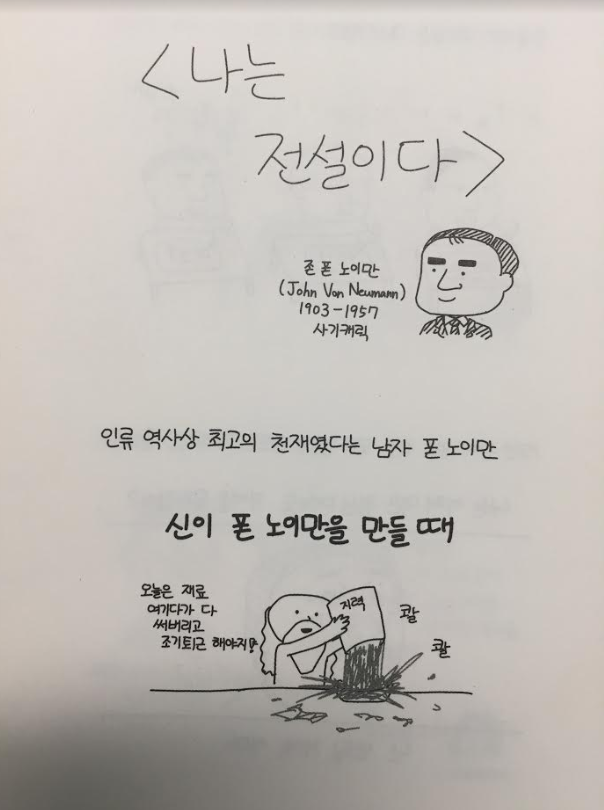 <나는
전설이다>
존 폰 노이만
(John Von Neumann)
1903-1957
사기캐릭
인류 역사상 최고의 천재였다는 남자 폰 노이만
신이 폰 노이만을 만들 때
오늘은 재료
여기다가 다
써버리고
조기퇴근 해야지!
지력
콸
콸